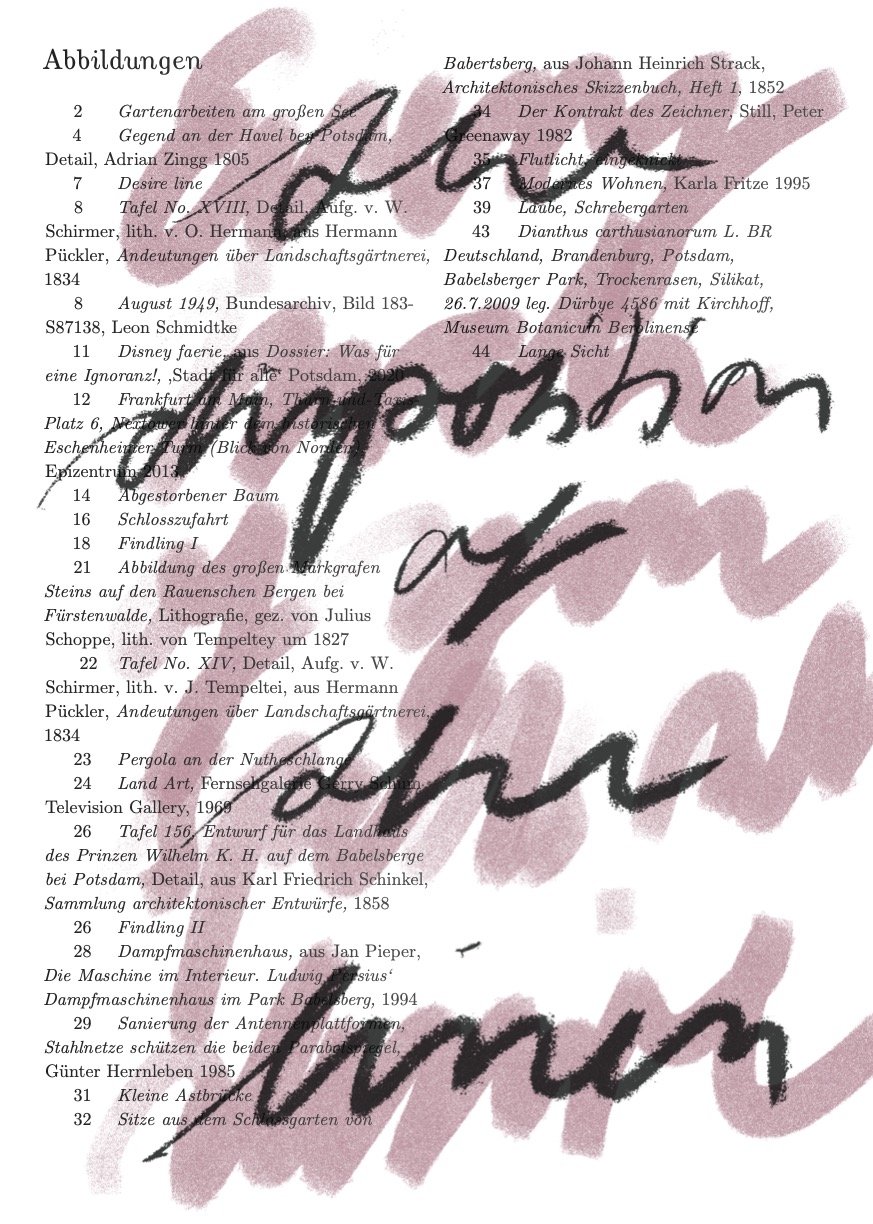 Abbildungen
2 Gartenarbeiten am großen See
4 Gegend an der Havel bey Potsdam,
Detail, Adrian Zingg 1805
7 Desire line
8 Tafel No. XVIII, Detail, Aufg. v. W.
Schirmer, lith. v. O. Hermann, aus Hermann
Pückler, Andeutungen über Landschaftsgärtnerei,
1834
8 August 1949, Bundesarchiv, Bild 183-
S87138, Leon Schmidtke
11 Disney faerie, aus Dossier: Was für
eine Ignoranz!, ‚Stadt für alle‘ Potsdam, 2020
12 Frankfurt am Main, Thurn-und-Taxis-
Platz 6, Nextower hinter dem historischen
Eschenheimer Turm (Blick von Norden),
Epizentrum 2013
14 Abgestorbener Baum
16 Schlosszufahrt
18 Findling I
21 Abbildung des großen Markgrafen
Steins auf den Rauenschen Bergen bei
Fürstenwalde, Lithografie, gez. von Julius
Schoppe, lith. von Tempeltey um 1827
22 Tafel No. XIV, Detail, Aufg. v. W.
Schirmer, lith. v. J. Tempeltei, aus Hermann
Pückler, Andeutungen über Landschaftsgärtnerei,
1834
23 Pergola an der Nutheschlange
24 Land Art, Fernsehgalerie Gerry Schum
Television Gallery, 1969
26 Tafel 156, Entwurf für das Landhaus
des Prinzen Wilhelm K. H. auf dem Babelsberge
bei Potsdam, Detail, aus Karl Friedrich Schinkel,
Sammlung architektonischer Entwürfe, 1858
26 Findling II
28 Dampfmaschinenhaus, aus Jan Pieper,
Die Maschine im Interieur. Ludwig Persius‘
Dampfmaschinenhaus im Park Babelsberg, 1994
29 Sanierung der Antennenplattformen,
Stahlnetze schützen die beiden Parabolspiegel,
Günter Herrnleben 1985
31 Kleine Astbrücke
32 Sitze aus dem Schlossgarten von
Babertsberg, aus Johann Heinrich Strack,
Architektonisches Skizzenbuch, Heft 1, 1852
34 Der Kontrakt des Zeichner, Still, Peter
Greenaway 1982
35 Flutlicht, eingeknickt
37 Modernes Wohnen, Karla Fritze 1995
39 Laube, Schrebergarten
43 Dianthus carthusianorum L. BR
Deutschland, Brandenburg, Potsdam,
Babelsberger Park, Trockenrasen, Silikat,
26.7.2009 leg. Dürbye 4586 mit Kirchhoff,
Museum Botanicum Berolinense
44 Lange Sicht